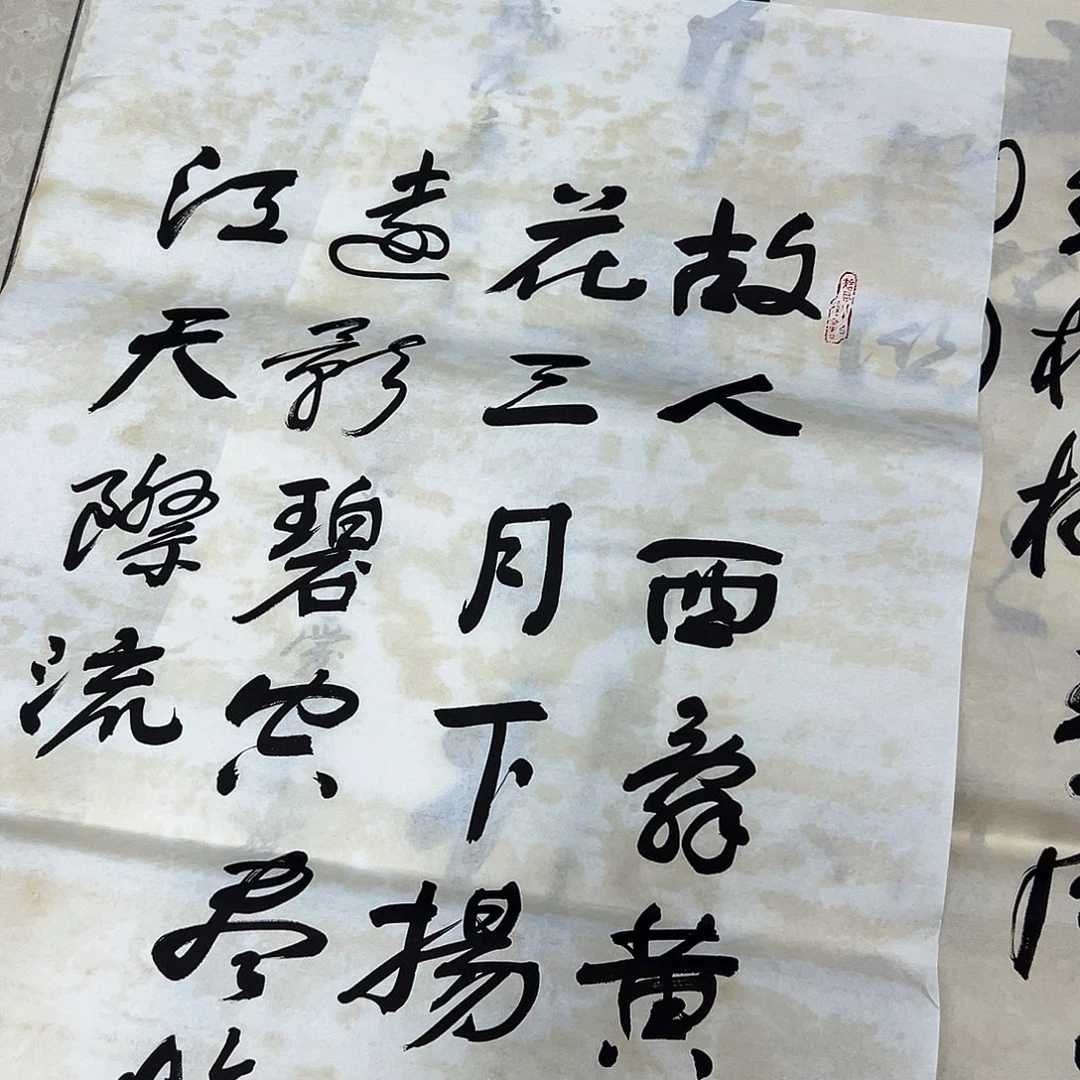 故人西辭黄
花三月下揚
遠影碧空尽
江天際流